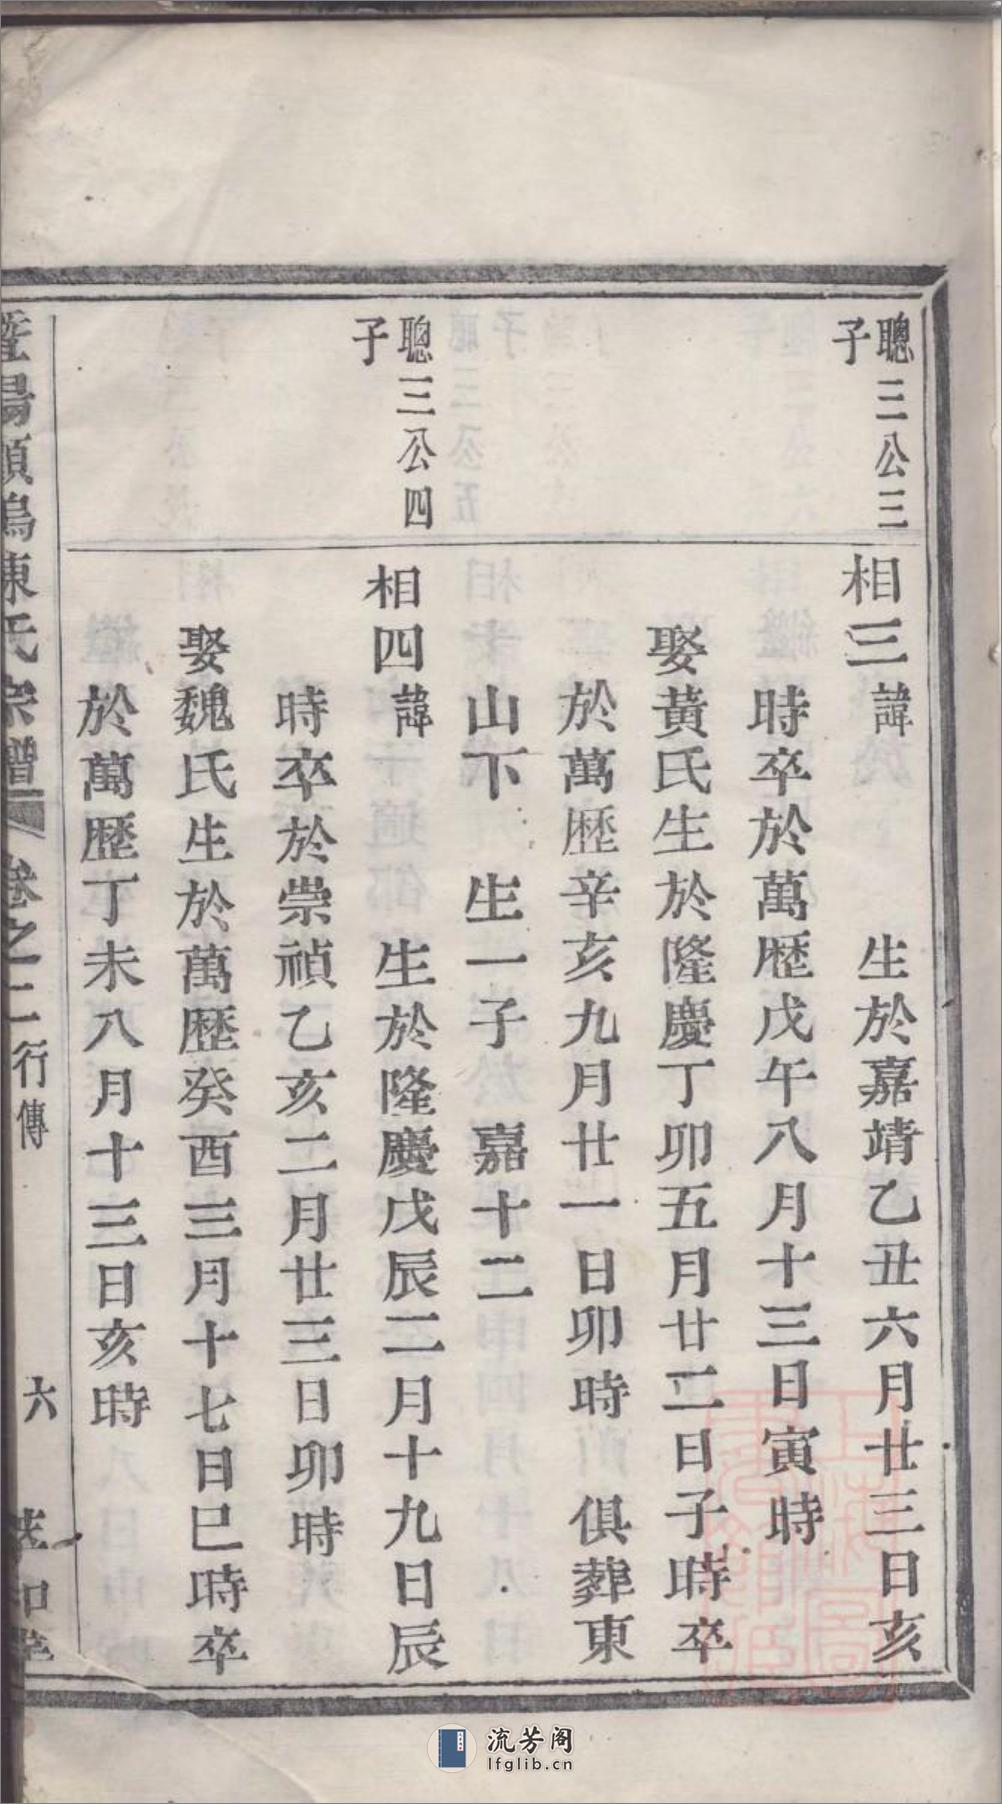 聰三公三
子
相三諱　　生於嘉靖乙丑六月廿三日亥
時卒於萬歷戊午八月十三日寅時
娶黃氏生於隆慶丁卯五月廿二日子時卒
於萬歷辛亥九月廿一日卯時　俱葬東
山下　生一子　嘉十二
聰三公四
子
相四諱　　生於隆慶戊辰二月十九日辰
時卒於崇禎乙亥二月廿三日卯時
娶魏氏生於萬歷癸酉三月十七日巳時卒
於萬歷丁未八月十三日亥時
暨陽項塢陳氏宗譜 卷之二 行傳 六
流芳阁
lfglib.cn